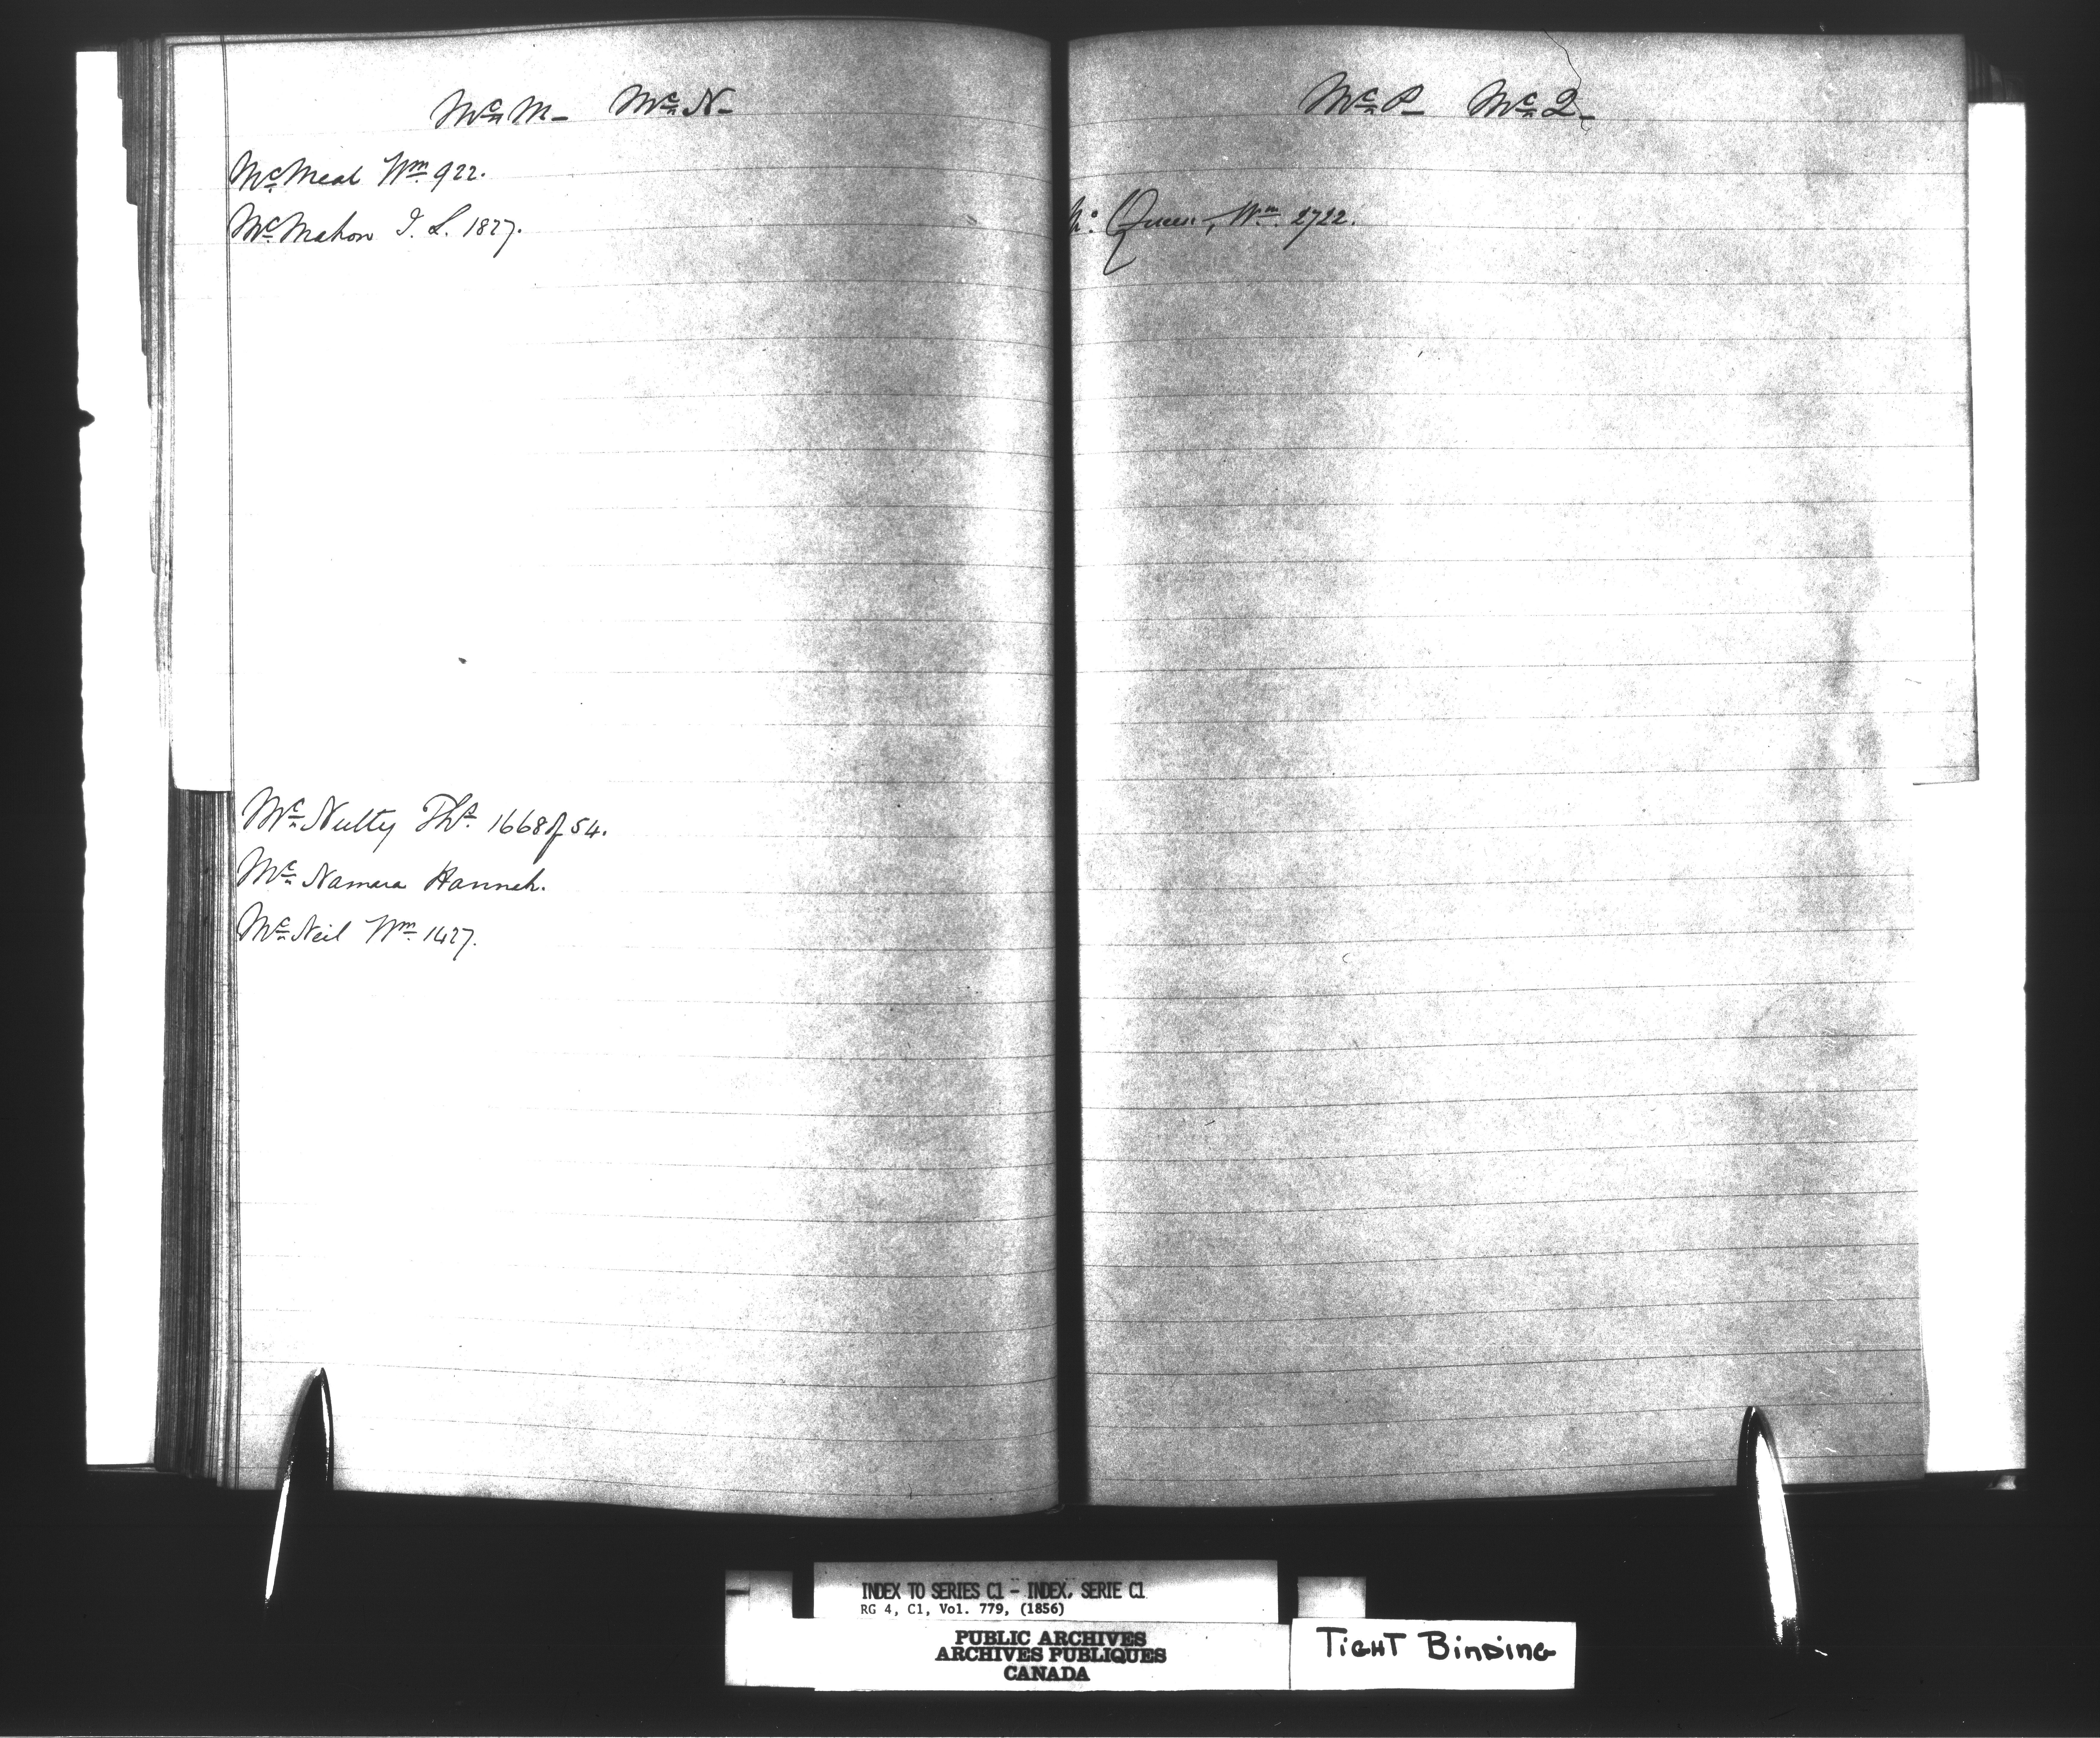 McM- McN-
McMeal Wm 922.
McMahon I. S. 1827.
McNulty Thos 1668 of 54.
McNamara Hannah.
McNeil Wm 1427.
McP- McQ-
Mc Queen, Wm. 2722.
INDEX TO SERIES C1 - INDEX, SERIE C1
RG 4, C1, Vol. 779, (1856)
PUBLIC ARCHIVES
ARCHIVES PUBLIQUES
CANADA
TIGHT BINDING